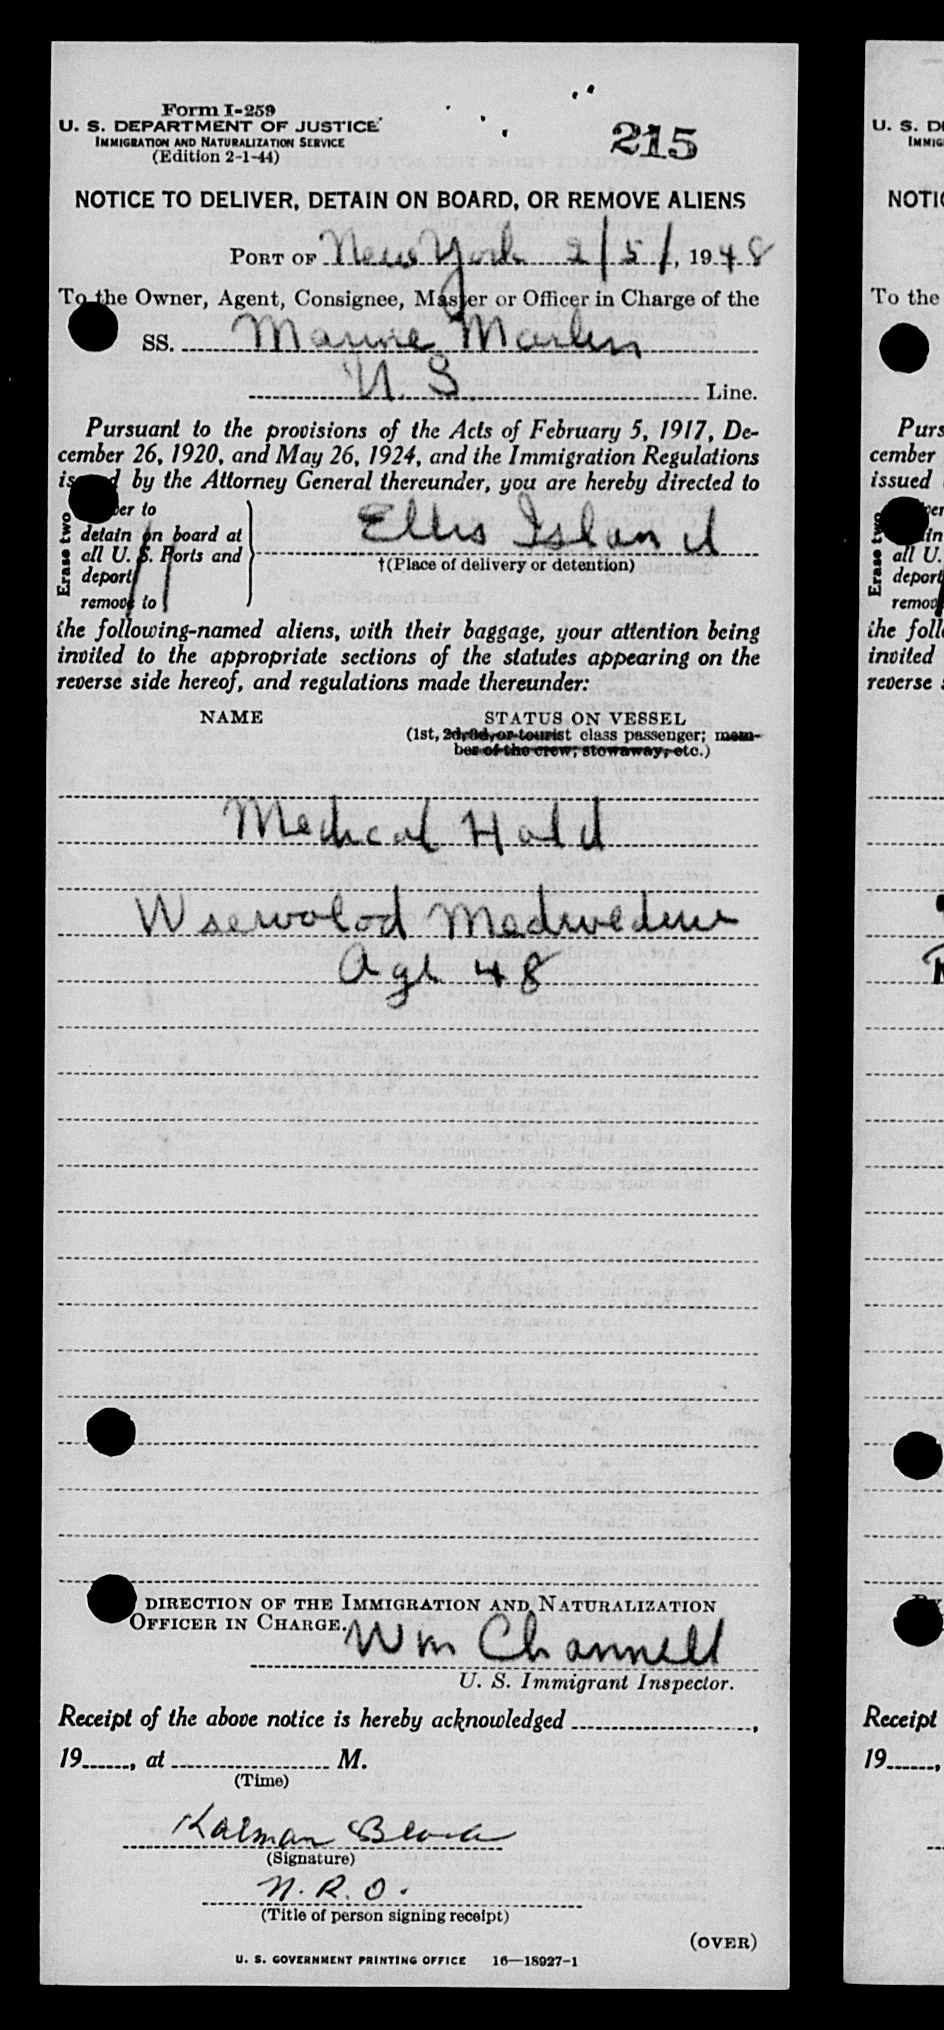 Form I-259
U. S. DEPARTMENT OF JUSTICE
IMMIGRATION AND NATURALIZATION SERVICE
(Edition 2-1-44)
215
NOTICE TO DELIVER, DETAIN ON BOARD, OR REMOVE ALIENS
PORT OF New York 2/5/, 1948
To the Owner, Agent, Consignee, Master or Officer in Charge of the
SS. Marine Marlin
U. S. Line.
Pursuant to the provisions of the Acts of February 5, 1917, De-
cember 26, 1920, and May 26, 1924, and the Immigration Regulations
by the Attorney General thereunder, you are hereby directed to
Erase two
to
detain on board at
all U. S. Ports and
deport
remove to
Ellis Island
†(Place of delivery or detention)
the following-named aliens, with their baggage, your attention being
invited to the appropriate sections of the statutes appearing on the
reverse side hereof, and regulations made thereunder:
NAME STATUS ON VESSEL
(1st, 2d, 3d, or tourist class passenger; mem-
ber of the crew; stowaway, etc.)
Medical Hold
Wsewolod
Age 48
DIRECTION OF THE IMMIGRATION AND NATURALIZATION
OFFICER IN CHARGE.
Wm Channell
U. S. Immigrant Inspector.
Receipt of the above notice is hereby acknowledged ,
19, at M.
(Time)
Kalman
(Signature)
N. R. O.
(Title of person signing receipt)
(OVER)
U. S. GOVERNMENT PRINTING OFFICE 16—18927-1
U. S.
NOTIC
To the
Purs
cember
issued
Erase two
all U.
deport
remov
the foll
invited
reverse
Receipt
19,